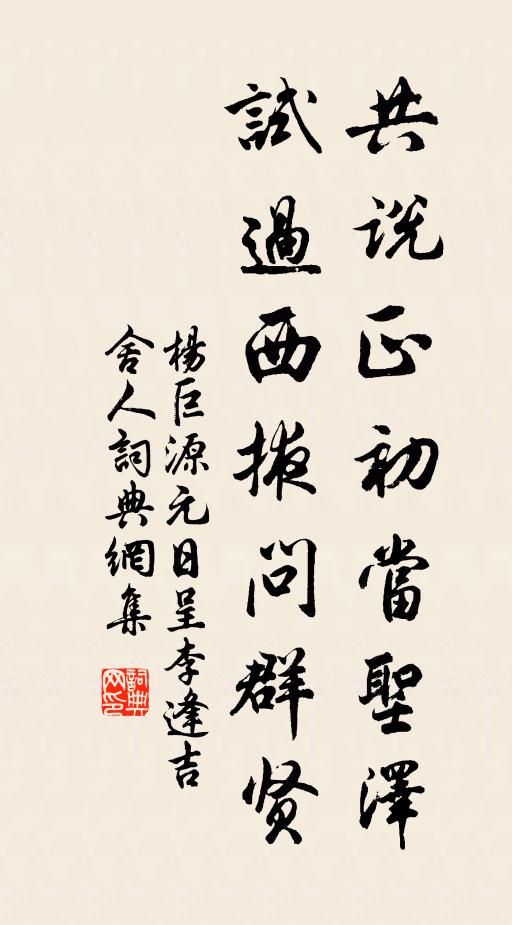 共说正初當聖澤
試過西掖問群贤
楊巨源元日呈李逢吉
舍人詞典網集
詞典网印